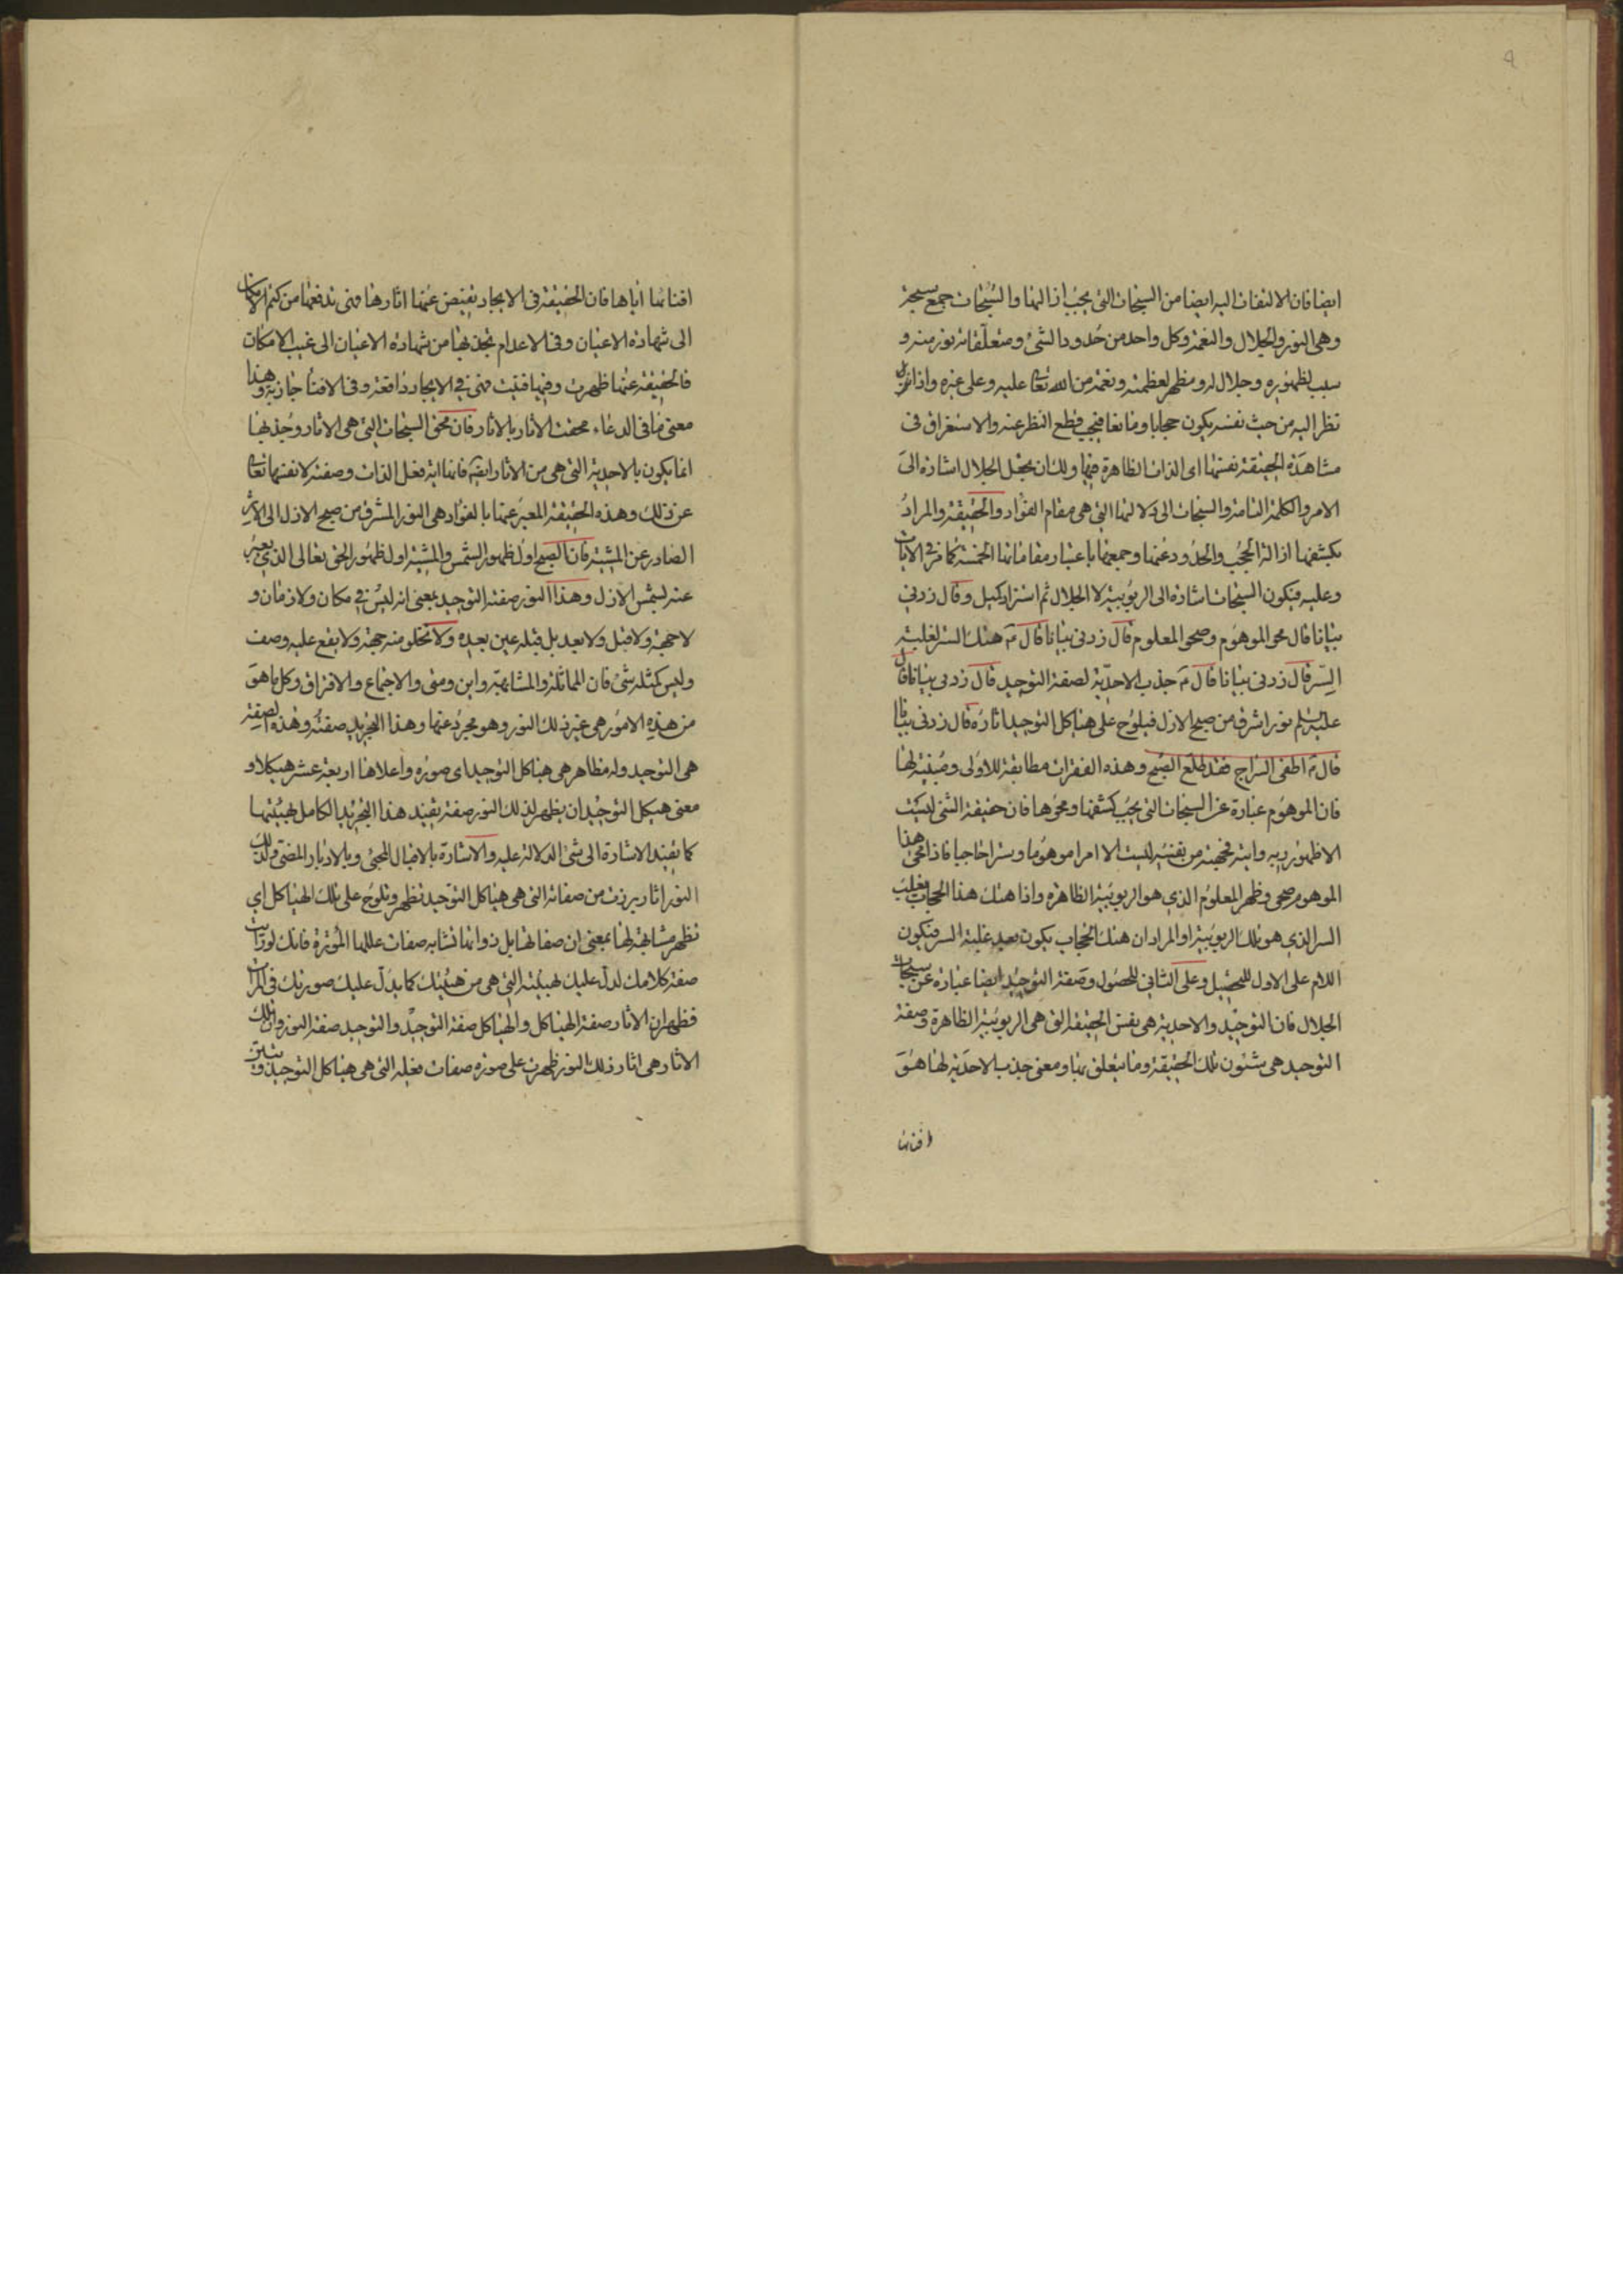 ايضا فان الالتفات اليه ايضا من السبحات التي يجب ازالتها والسبحات جمع سبحة
وهي النور والجلال والنعمة وكل واحد من حدود الشئ ومتعلقاته نور منه و
سبب لظهوره وجلال له ومظهر لعظمته ونعمة من الله تعا عليه وعلى غيره واذا
نظر اليه من حيث نفسه يكون حجابا ومانعا فيجب قطع النظر عنه والاستغراق في
مشاهدة الحقيقة نفسها اى الذات الظاهرة فيها ولك ان يجعل الجلال اشارة الى
الامر والكلمة التامة والسبحات الى دلالتها التي هي مقام الفؤاد والحقيقة والمراد
بكشفها ازالة الحجب والحدود عنها وجميعها باعتبار مقاماتها الخمسة كما مر في الايات
وعليه فيكون السبحات اشارة الى الربوبية لا الجلال ثم استزاد كميل وقال زدني
بيانا قال محو الموهوم وصحو المعلوم قال زدني بيانا قال ع هتك الستر لغلبة
السر قال زدني بيانا قال ع جذب الاحدية لصفة التوحيد قال زدني بيانا قال
عليه السلم نور اشرق من صبح الازل فيلوح على هياكل التوحيد اثاره قال زدني بيانا
قال ع اطفى السراج فقد طلع الصبح وهذه الفقرات مطابقة للاولى ومبينة لها
فان الموهوم عبارة عن السبحات التي يجب كشفها ومحوها فان حقيقة الشئ ليست
الا ظهور ربه وانيته فجهته من نفسه ليست الا امرا موهوما وسترا حاجبا فاذا محى هذا
الموهوم صحى وظهر المعلوم الذي هو الربوبية الظاهرة واذا هتك هذا الحجاب يغلب
السر الذي هو تلك الربوبية او المراد ان هتك الحجاب يكون بعد غلبة السر فيكون
اللام على الاول للتحصيل وعلى الثاني للحصول وصفة التوحيد ايضا عبارة عن سبحات
الجلال فان التوحيد والاحدية هي نفس الحقيقة التي هي الربوبية الظاهرة وصفة
التوحيد هي شئون تلك الحقيقة وما يتعلق بها ومعنى جذب الاحدية لها هو
افنائها
افنائها اياها فان الحقيقة في الايجاد يفيض عنها اثارها فهى تدفعها من كتم الامكان
الى شهادة الاعيان وفى الاعدام تجذبها من شهادة الاعيان الى غيب الامكان
فالحقيقة عنها ظهرت وفيها فنيت فهى في الايجاد دافعة وفى الافناء جاذبة وهذا
معنى ما في الدعاء محقت الاثار بالاثار فان محق السبحات التي هي الاثار وجذبها
انما يكون بالاحدية التي هي من الاثار ايضا فانها اية فعل الذات وصفته لا نفسها تعا
عن ذلك وهذه الحقيقة المعبر عنها بالفؤاد هي النور المشرق من صبح الازل الى الاثر
الصادر عن المشية فان الصبح اول ظهور الشمس والمشية اول ظهور الحق تعالى الذي يعبر
عنه بشمس الازل وهذا النور صفته التوحيد بمعنى انه ليس في مكان ولا زمان و
لا جهة ولا قبل ولا بعد بل قبله عين بعده ولا تخلو منه جهة ولا يقع عليه وصف
وليس كمثله شئ فان المماثلة والمشابهة واين ومتى والاجتماع والافتراق وكل ما هو
من هذه الامور هي غير ذلك النور وهو مجرد عنها وهذا التجريد صفته وهذه الصفة
هي التوحيد وله مظاهر هي هياكل التوحيد اى صوره واعلاها اربعة عشر هيكلا و
معنى هيكل التوحيد ان يظهر لذلك النور صفة يفيد هذا التجريد الكامل بهيئتها
كما يفيد الاشارة الى شئ الدلالة عليه والاشارة بالاقبال المجئ وبالادبار المضى ولذلك
النور اثار برزت من صفاته التي هي هياكل التوحيد تظهر وتلوح على تلك الهياكل اي
تظهر مشابهة لها بمعنى ان صفاتها بل ذواتها تشابه صفات عللها المؤثرة فانك لو رايت
صفة كلامك لدل عليك بهيئته التي هي من هيئتك كما يدل عليك صورتك في المرات
فظهر ان الاثار صفة الهياكل والهياكل صفة التوحيد والتوحيد صفة النور وان تلك
الاثار هي اثار ذلك النور ظهرت على صورة صفات فعله التي هي هياكل التوحيد